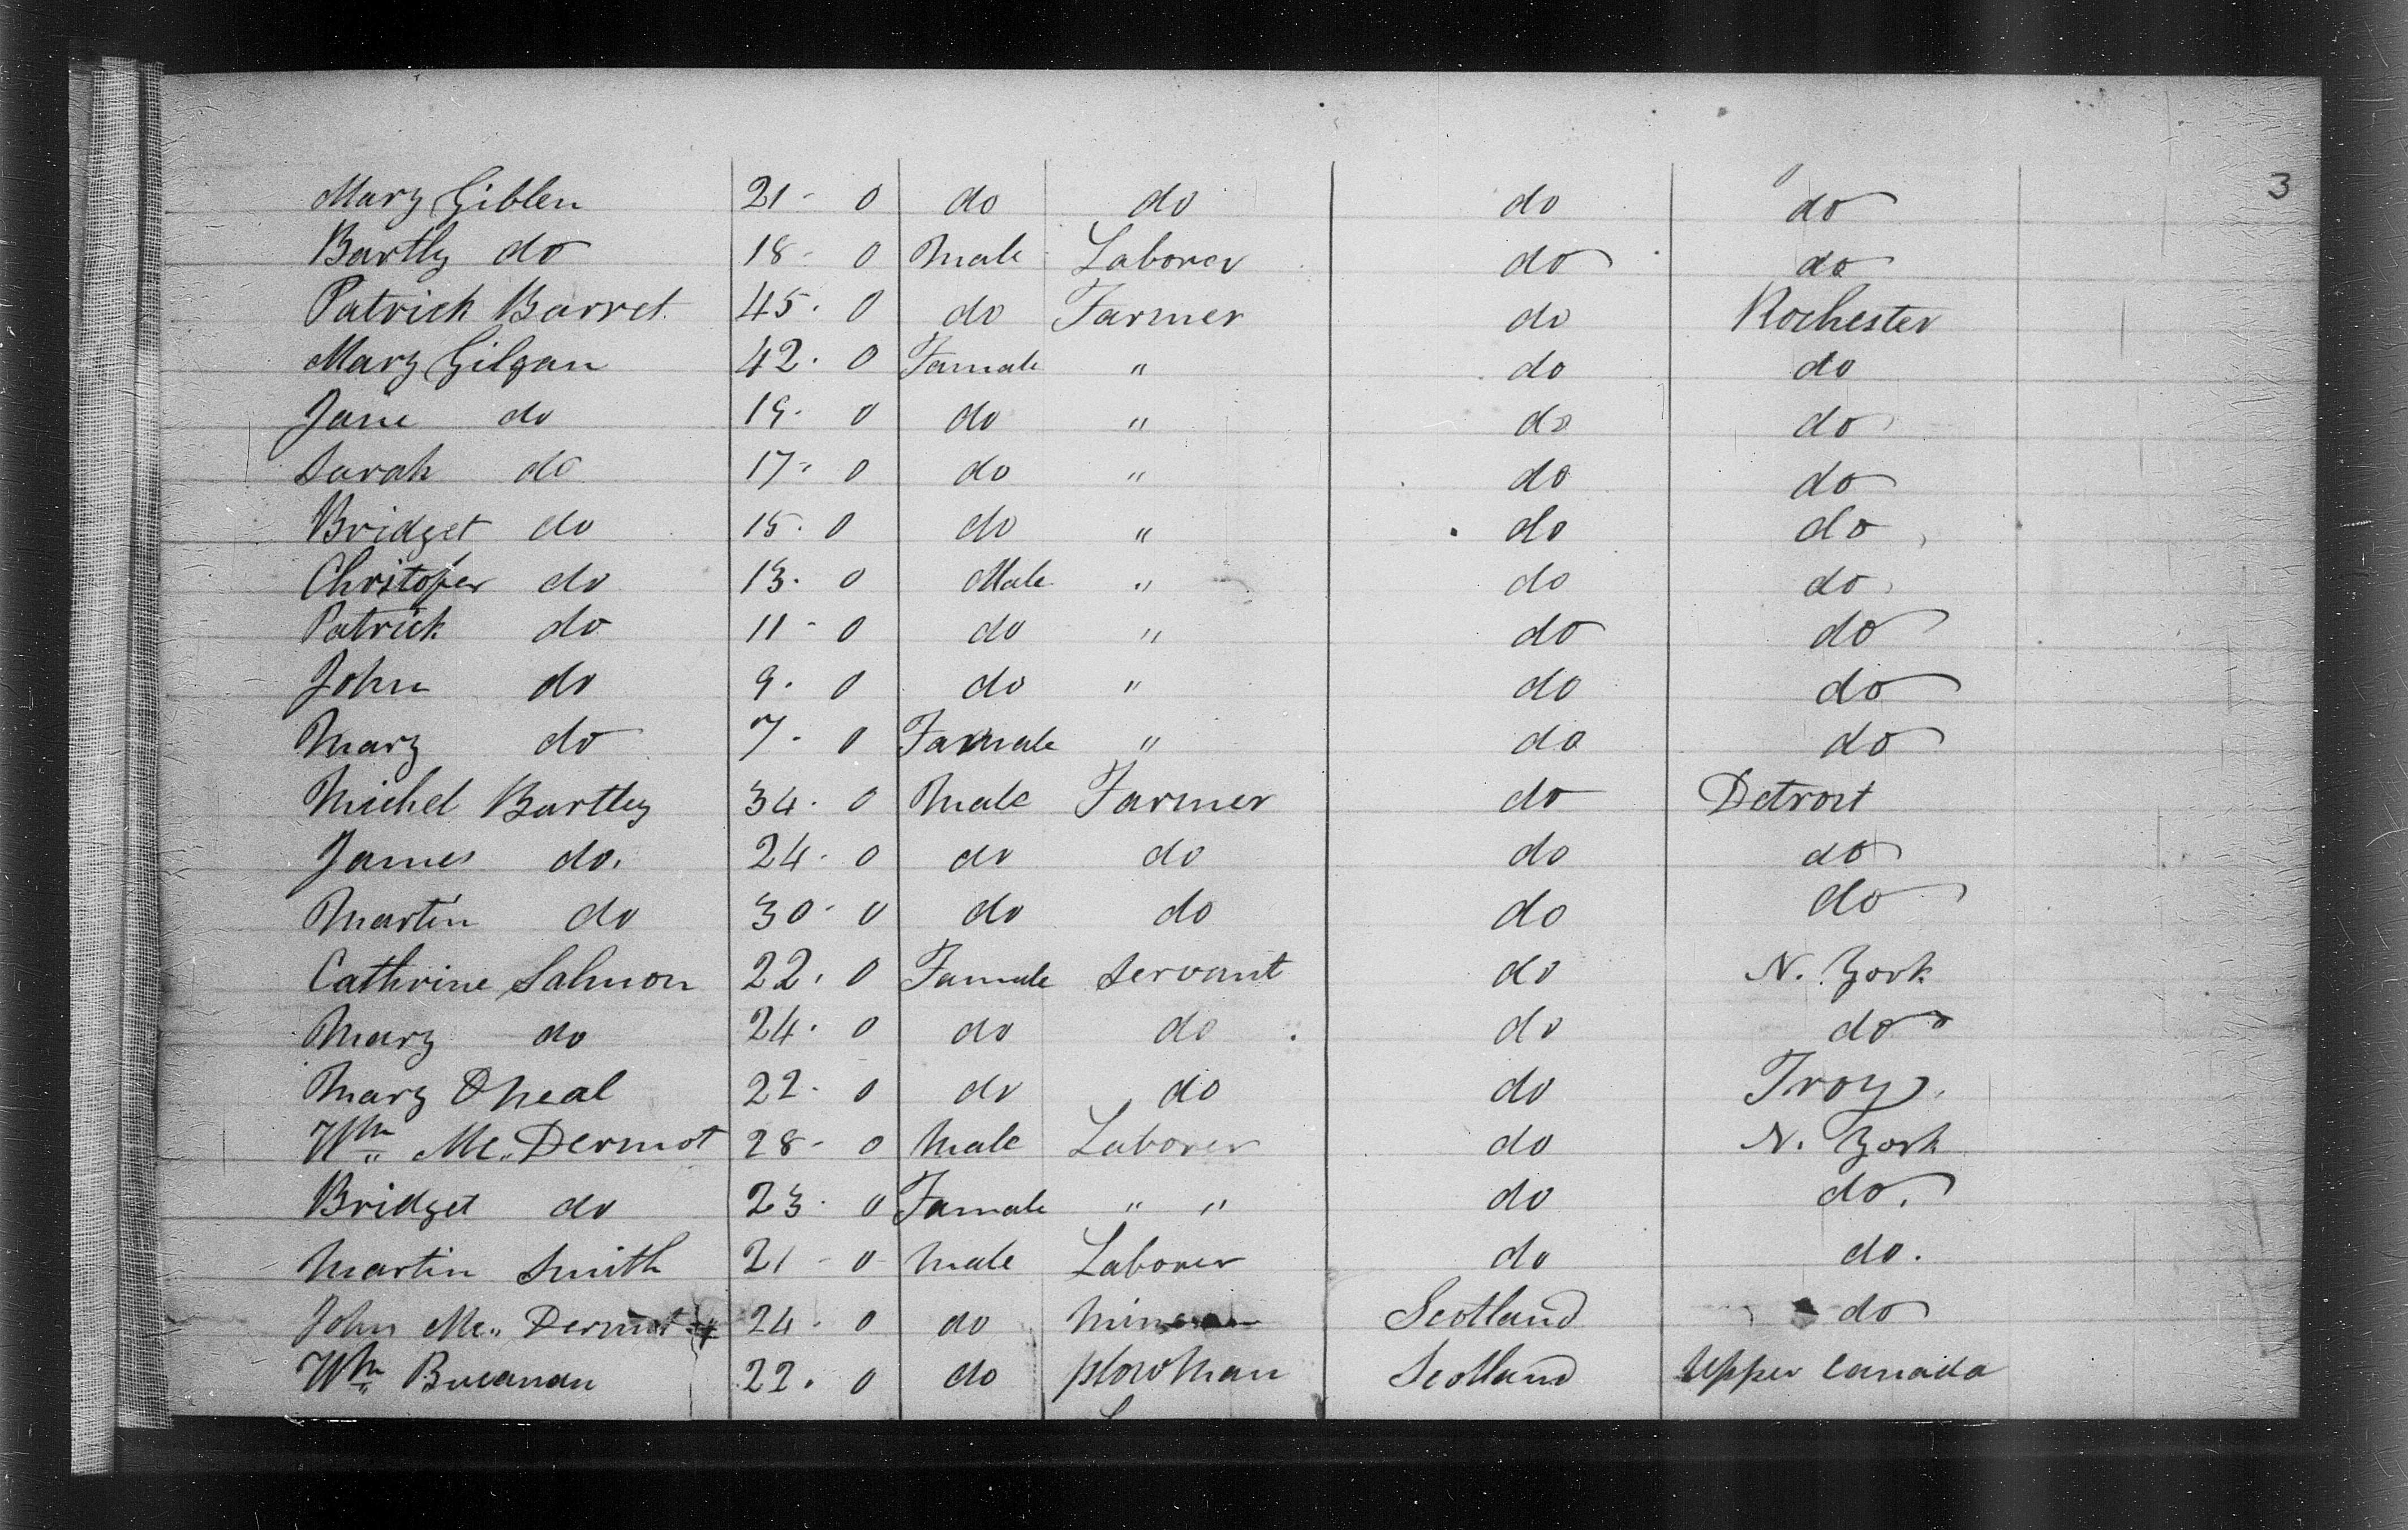 3
Mary Giblen 21 - 0 do do do do
Bartly do 18 - 0 Male Laborer do do
Patrick Barret 45 . 0 do Farmer do Rochester
Mary Gilgan 42 . 0 Famale " do do
Jane do 19 . 0 do " do do
Sarah do 17 . 0 do " do do
Bridget do 15 . 0 do " do do
Chritofer do 13 . 0 Male " do do
Patrick do 11 - 0 do " do do
John do 9 . 0 do " do do
Mary do 7 . 0 Famale " do do
Michel Bartley 34 . 0 Male Farmer do Detroit
James do. 24 . 0 do do do do
Martin do 30 - 0 do do do do
Cathrine Salmon 22 . 0 Famale Servant do N. York
Mary do 24 . 0 do do do do
Mary Oneal 22 . 0 do do do Troy
Wm Mc Dermot 28 - 0 Male Laborer do N. York
Bridget do 23 . 0 Famale " " do do.
Martin Smith 21 - 0 Male Laborer do do.
John Mc Dermot 24 . 0 do Scotland do
Wm Bucanan 22 . 0 do plowman Scotland Upper Canada